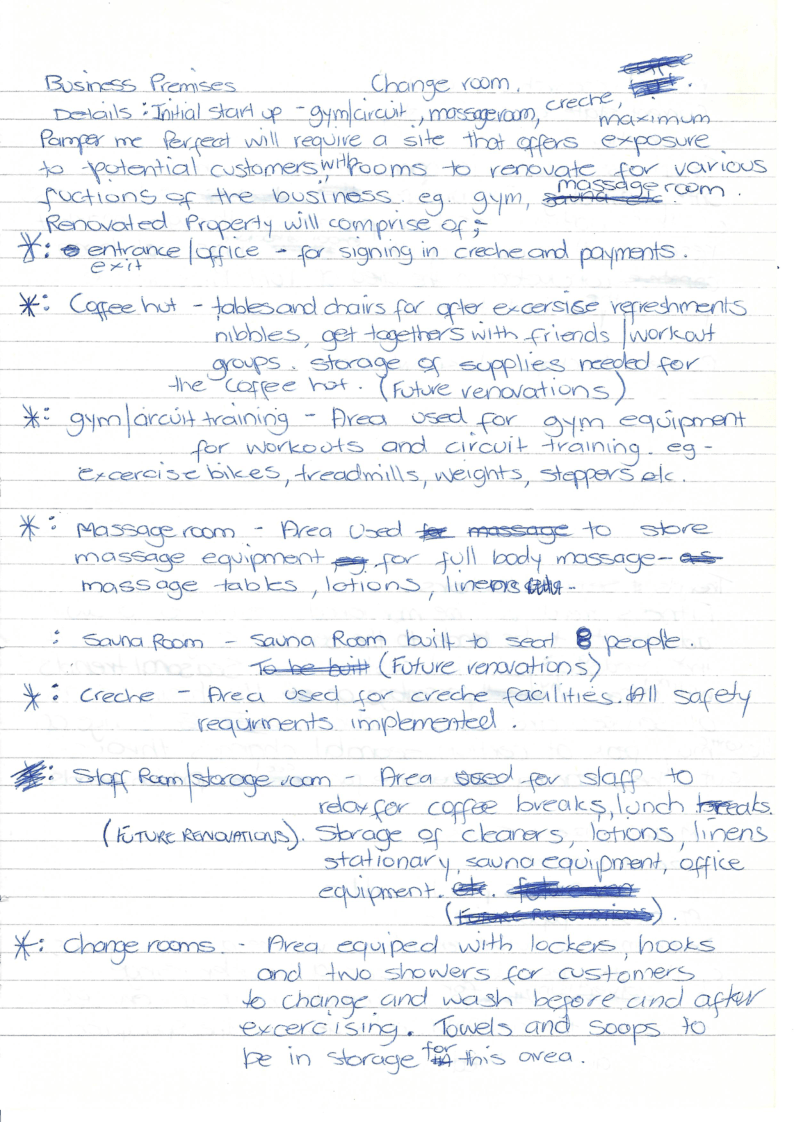 Business Premises Change room.
Details : Initial start up - gym/circuit, massage room, creche,
Pamper me Perfect will require a site that offers maximum exposure
to potential customers with rooms to renovate for various
fuctions of the business. eg. gym, massage room.
Renovated Property will comprise of ;-
*: entrance/office - for signing in creche and payments.
exit
*: Coffee hut - tables and chairs for after excersise refreshments
nibbles, get togethers with friends/workout
groups. storage of supplies needed for
the coffee hut. (Future renovations)
*: gym/circuit training - Area used for gym equipment
for workouts and circuit training. eg -
excercise bikes, treadmills, weights, steppers etc.
*: Massage room - Area used to store
massage equipment for full body massage -
massage tables, lotions, linens -
: Sauna Room - Sauna Room built to seat 8 people.
(Future renovations)
*: Creche - Area used for creche facilities. All safety
requirments implemented.
: Staff Room/storage room - Area used for staff to
relax for coffee breaks, lunch breaks.
(FUTURE RENOVATIONS). Storage of cleaners, lotions, linens
stationary, sauna equipment, office
equipment.
*: Change rooms. - Area equiped with lockers, hooks
and two showers for customers
to change and wash before and after
excercising. Towels and soaps to
be in storage for this area.